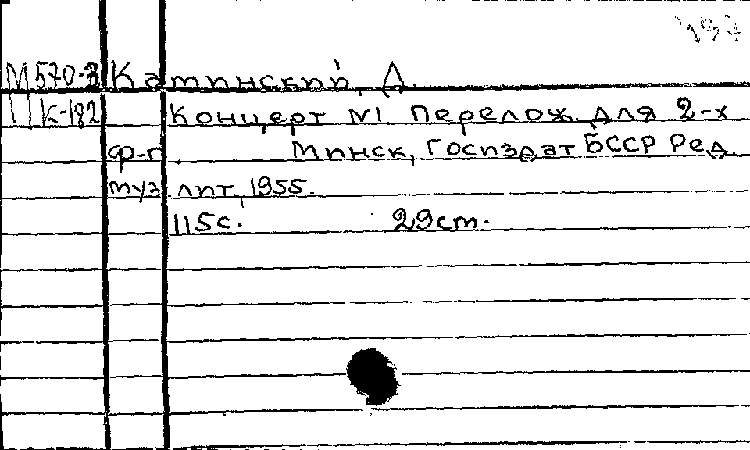 М570-3 Каминский, Д
К-182 Концерт №1 Перелож. для 2-х
ф-п. Минск, Госиздат БССР Ред.
муз. лит, 1955.
115с. 29cm.